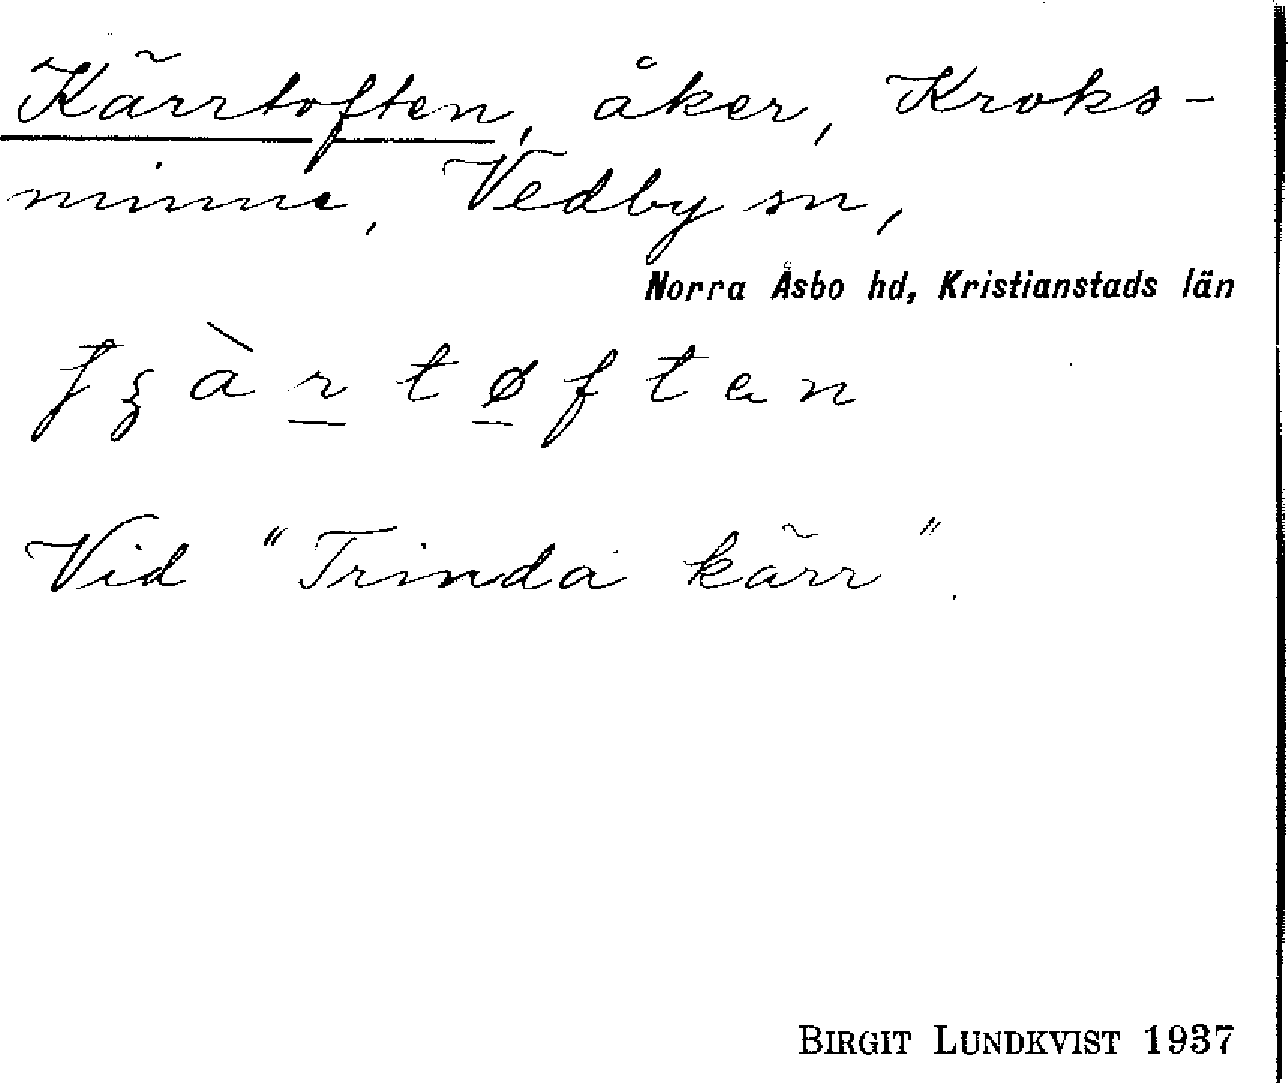 Kärrtoften, åker, Kroks-
minne, Vedby sn,
Norra Åsbo hd, Kristianstads län
Vid "Trinda kärr".
BIRGIT LUNDKVIST 1937